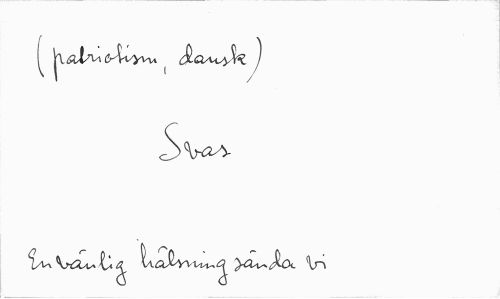 (patriotism, dansk)
Svas
En vänlig hälsning sända vi